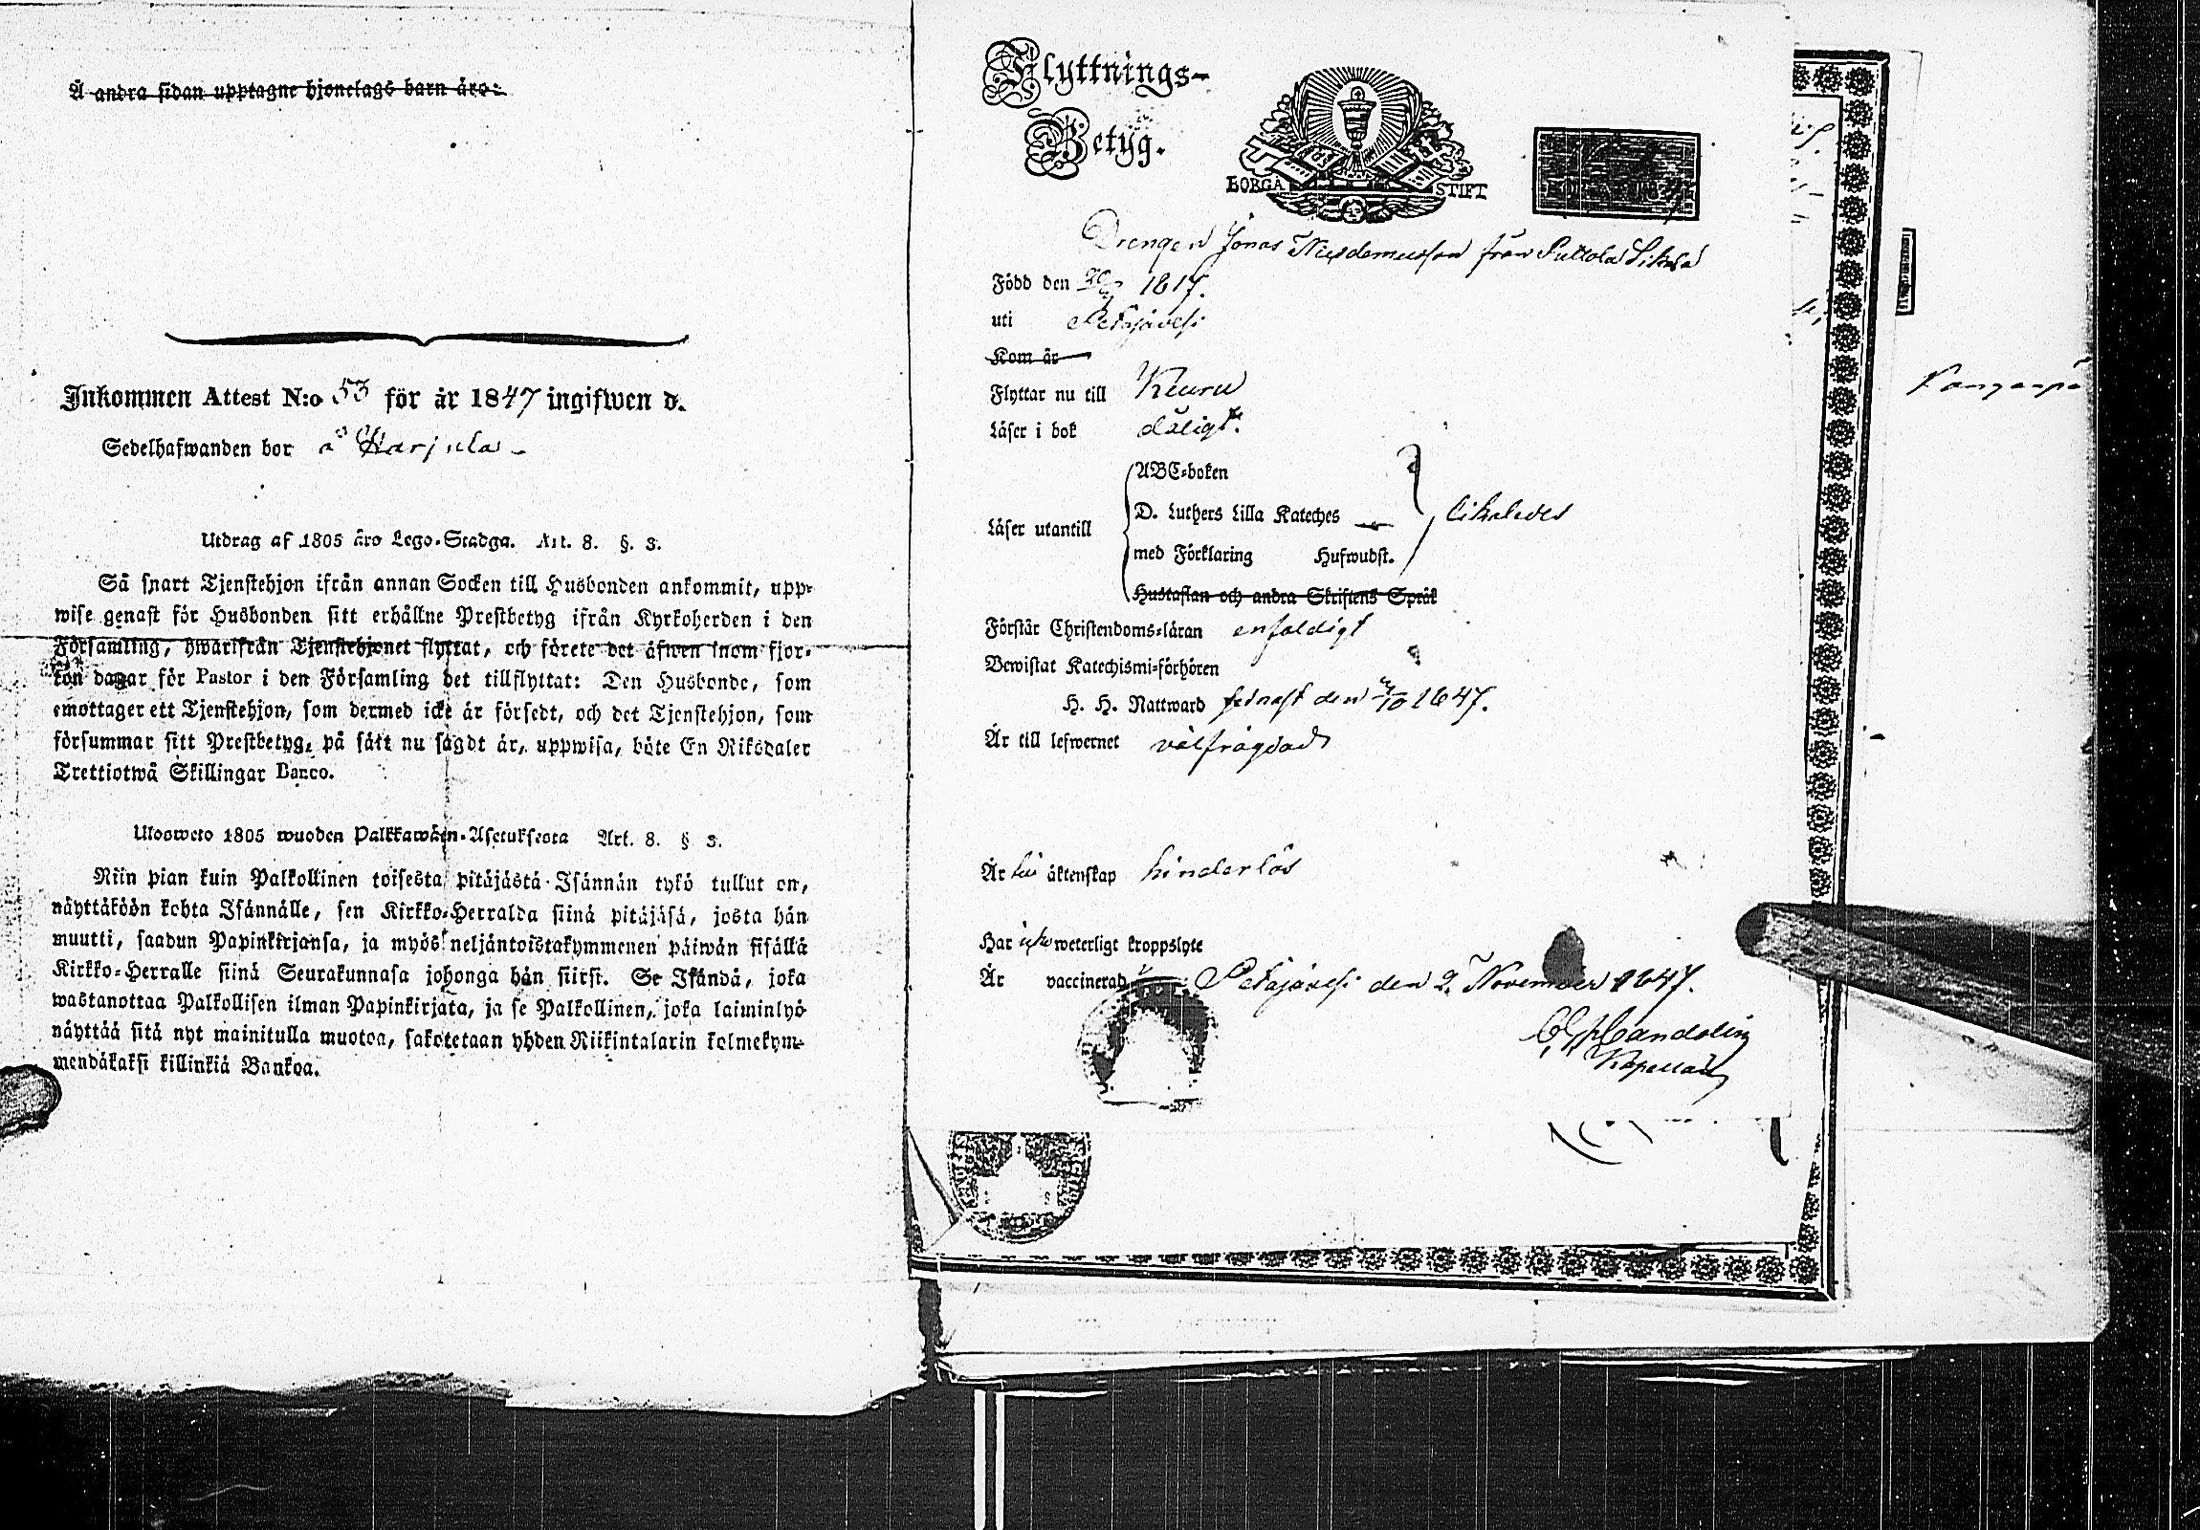 Å andra sidan upptagne hjonelags barn äro:
Inkommen Attest N:o 53 för år 1847 ingifwen d.
Sedelhafwanden bor å Harjula
Utdrag af 1805 års Lego-Stadga. Art. 8. §. 3.
Så snart Tjenstehjon ifrån annan Socken till Husbonden ankommit, upp-
wise genast för Husbonden sitt erhållne Prestbetyg ifrån Kyrkoherden i den
Församling, hwarifrån Tjenstehjonet flyttat, och förete det äfwen inom fjor-
ton dagar för Pastor i den Församling det tillflyttat: Den Husbonde, som
emottager ett Tjenstehjon, som dermed icke är försedt, och det Tjenstehjon, som
försummar sitt Prestbetyg, på sätt nu sagdt är, uppwisa, böte En Riksdaler
Trettiotwå Skillingar Banco.
Ulosweto 1805 wuoden Palkkawäen-Asetuksesta Art. 8. § 3.
Niin pian kuin Palkollinen toisesta pitäjästä Isännän tykö tullut on,
näyttäköön kohta Isännälle, sen Kirkko-Herralda siinä pitäjäsä, josta hän
muutti, saadun Papinkirjansa, ja myös neljäntoistakymmenen päiwän sisällä
Kirkko-Herralle siinä Seurakunnasa johonga hän siirsi. Se Isändä, joka
wastanottaa Palkollisen ilman Papinkirjata, ja se Palkollinen, joka laiminlyö
näyttää sitä nyt mainitulla muotoa, sakotetaan yhden Riikintalarin kolmekym-
mendäkaksi killinkiä Bankoa.
Flyttnings-
Betyg.
BORGÅ STIFT
Drengen Jonas Nicodemusson från Puttola Sikala
Född den 1817.
uti Petäjävesi
Kom år
Flyttar nu till Keuru
Läser i bok dåligt.
Läser utantill
ABC-boken
D. Luthers Lilla Kateches
likaledes
med Förklaring Hufwudst.
Hustaflan och andra Skriftens Språk
Förstår Christendoms-läran enfaldigt
Bewistat Katechismi-förhören
H. H. Nattward senast den /10 1847.
Är till lefwernet välfrägdad
Är till äktenskap hinderlös
Har icke weterligt kroppslyte
Är vaccinerad Petäjävesi den 2 November 1847.
Candolin
Kapellan